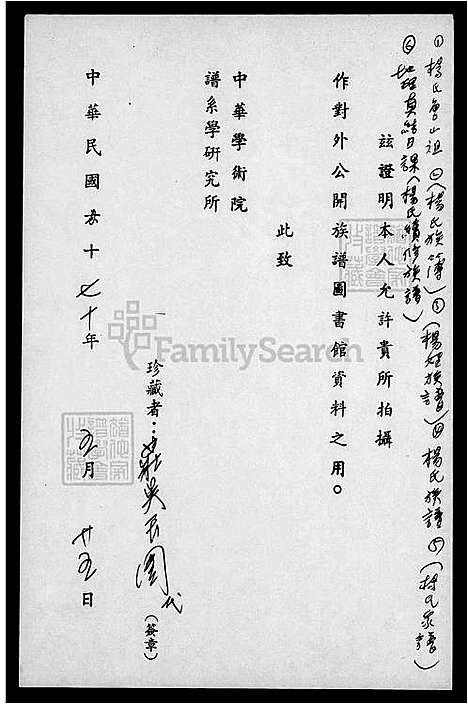 ①楊氏魯山祖②(楊氏族簿)③(楊姓族譜)④楊氏族譜⑤(楊氏家譜)
⑥地理真結日課(楊氏續修族譜)
茲證明本人允許貴所拍攝
作對外公開族譜圖書館資料之用。
此致
中華學術院
譜系學研究所
珍藏者:莊吳 (簽章)
中華民國 七十年 五月 廿五日
FamilySearch